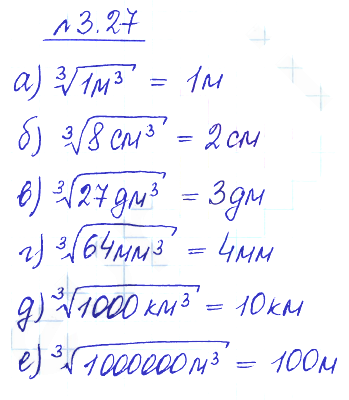 №3.27
а) ∛1м³ = 1м
б) ∛8см³ = 2см
в) ∛27дм³ = 3дм
г) ∛64мм³ = 4мм
д) ∛1000км³ = 10км
е) ∛1000000м³ = 100м